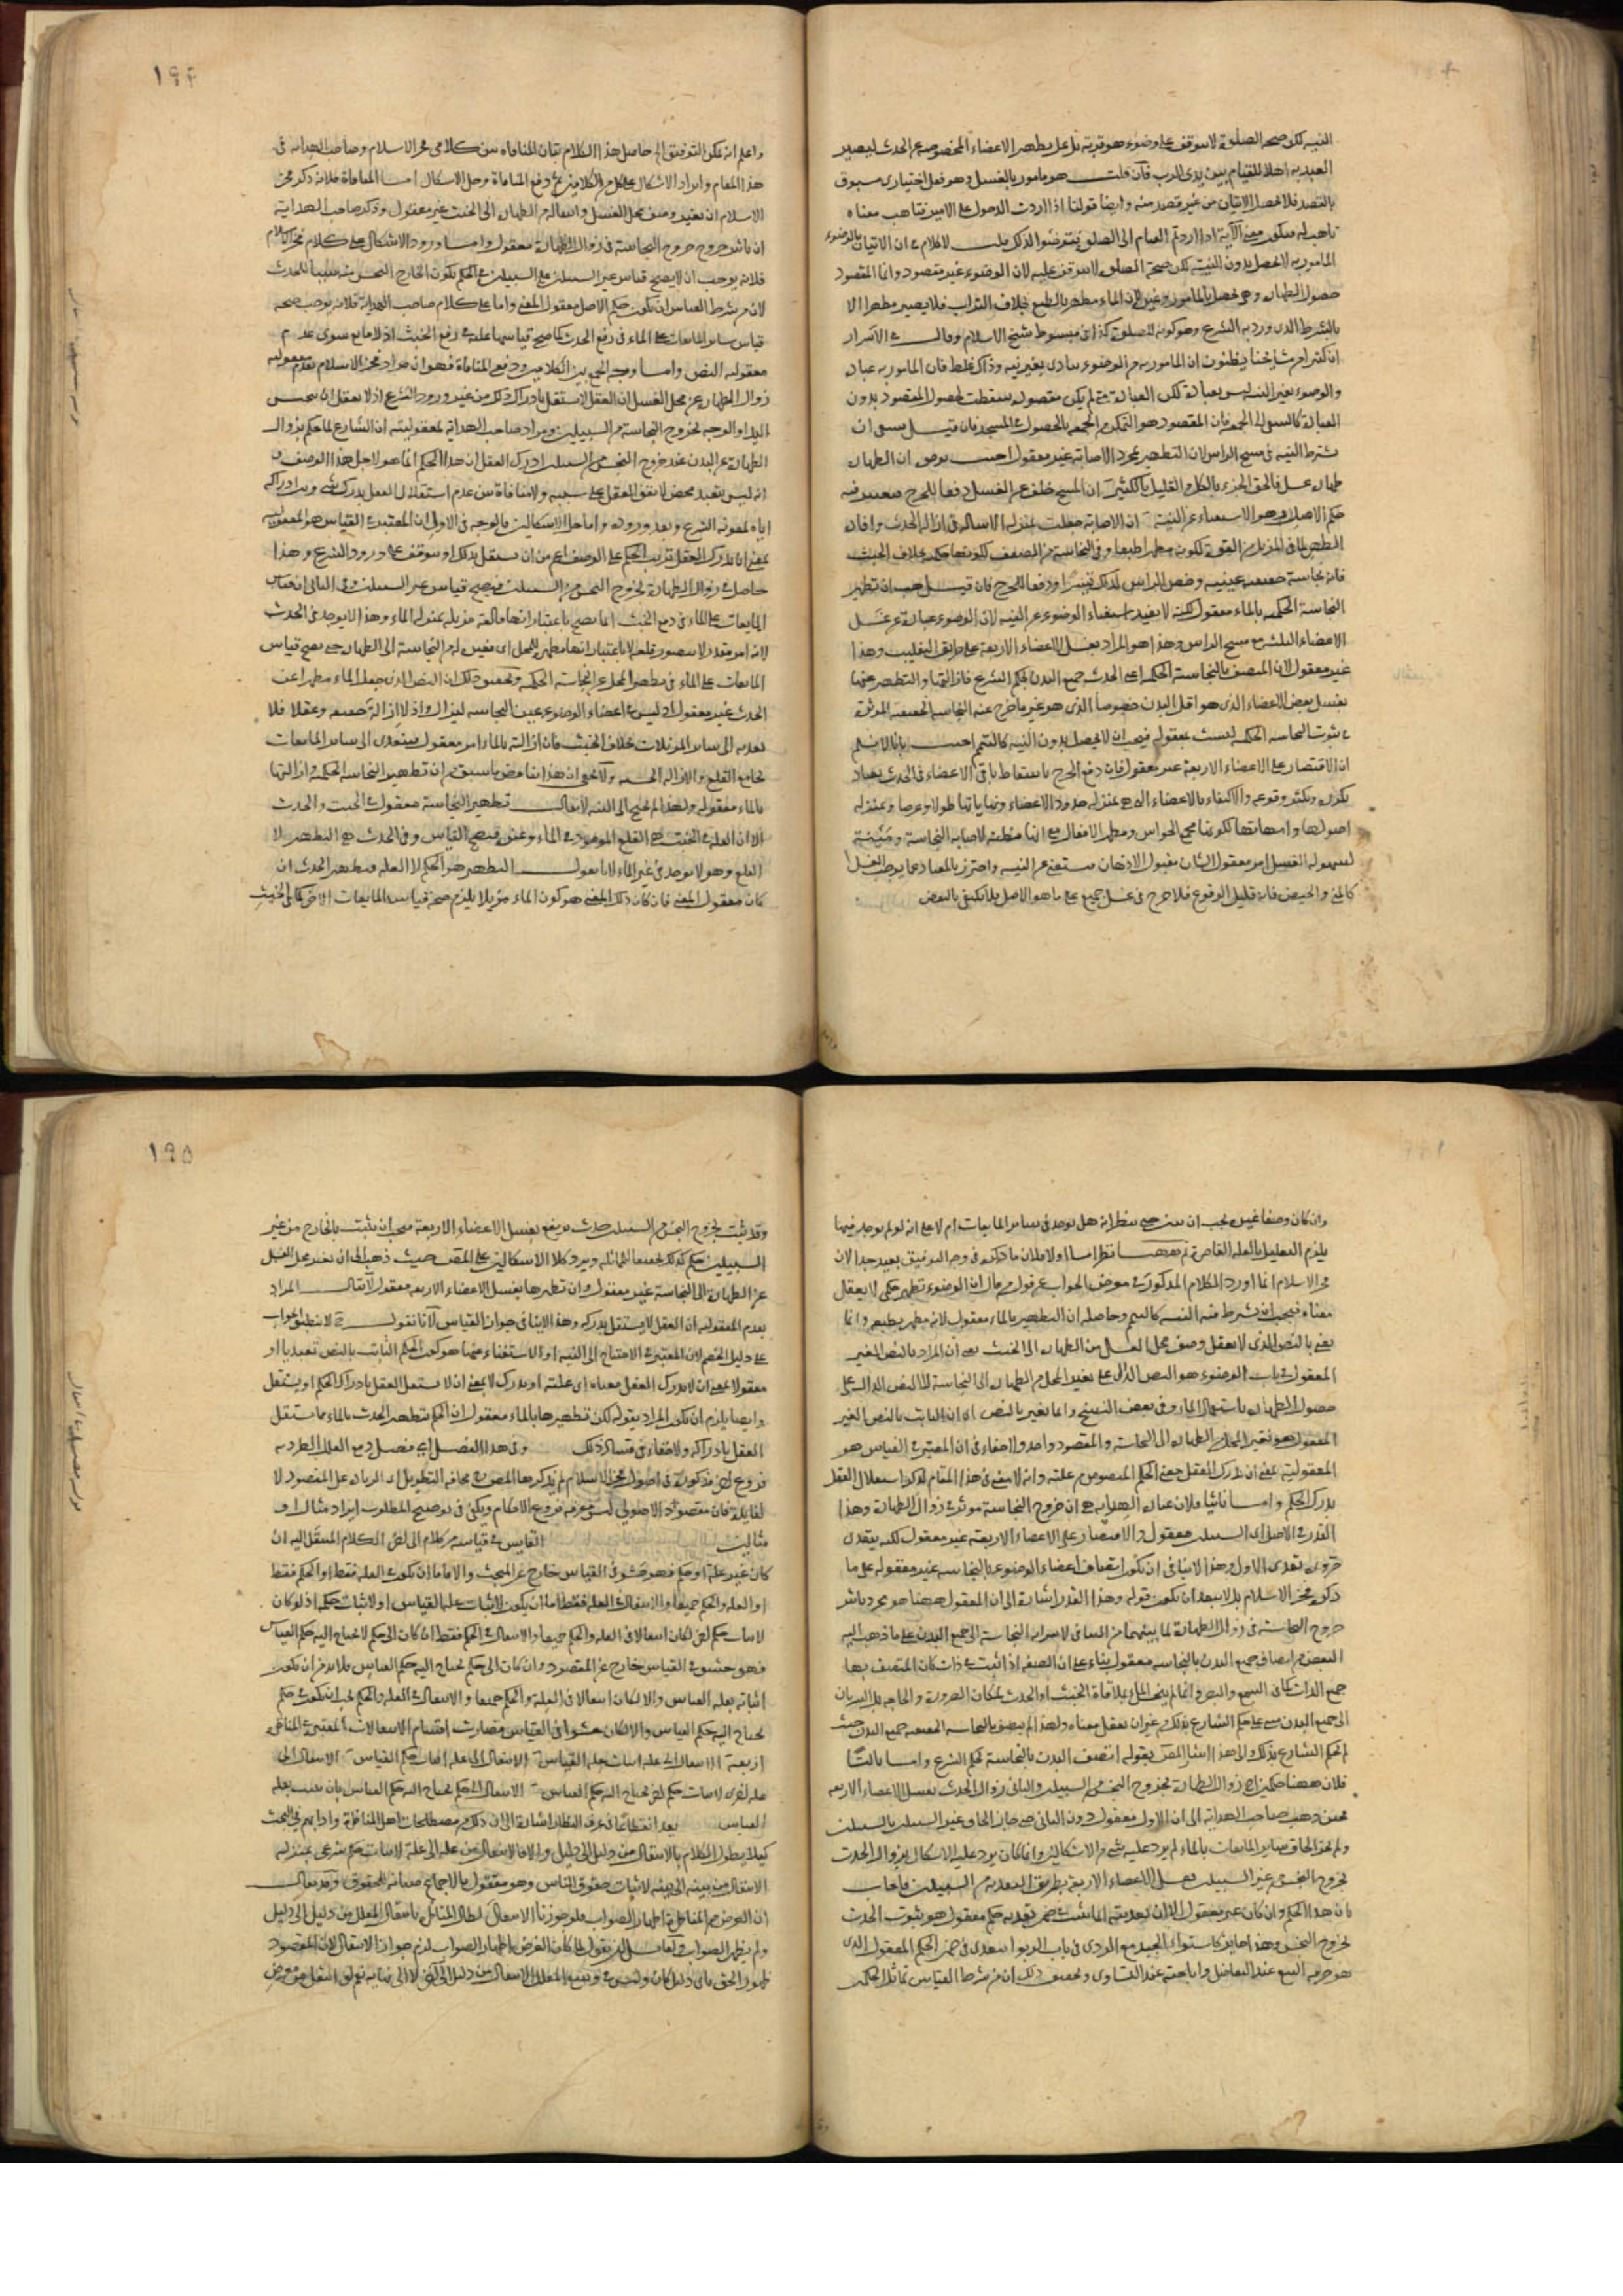 النية لكن صحة الصلوة لا تتوقف على وضوء هو قربة بل على تطهير الاعضاء المخصوصة عن الحدث ليصير
العبد به اهلا للقيام بين يدى الرب فان قلت هو مأمور بالغسل وهو فعل اختيارى مسبوق
بالقصد فلا يحصل الاتيان من غير قصد منه وايضا قولنا اذا اردت الدخول على الامير فتاهب معناه
تاهب له فيكون معنى الآية اذا اردتم القيام الى الصلوة فتوضئوا لذلك قلت لا كلام فى ان الاتيان بالوضوء
المأمور به لا يحصل بدون النية لكن صحة الصلوة لا تتوقف عليه لان الوضوء غير مقصود وانما المقصود
حصول الطهارة وهى تحصل بالمأمور وغيره لان الماء مطهر بالطبع بخلاف التراب فلا يصير مطهرا الا
بالشرط الذى ورد به الشرع وهو كونه للصلوة كذا فى مبسوط شيخ الاسلام وقال فى الاسرار
ان كثيرا من مشايخنا يظنون ان المأمور به من الوضوء يتادى بغير نية وذلك غلط فان المأمور به عبادة
والوضوء بغير النية ليس بعبادة لكن العبادة متى لم يكن مقصودة سقطت لحصول المقصود بدون
العبادة كالسعى الى الجمعة فان المقصود هو التمكن من الجمعة بالحصول فى المسجد فان قيل ينبغى ان
يشترط النية فى مسح الراس لان التطهير بمجرد الاصابة غير معقول اجيب بوجهين ان الطهارة
طهارة غسل فالحق الجزء بالكل والقليل بالكثير ان المسح خلف عن الغسل دفعا للحرج فيعتبر فيه
حكم الاصل وهو الاستغناء عن النية ان الاصابة جعلت بمنزلة الاسالة فى ازالة الحدث وافادة
التطهير لما فى المزيل من القوة لكونه مطهرا طبعا وفى النجاسة من الضعف لكونها حكمية بخلاف الخبث
فانه نجاسة حقيقية عينية وخص الراس لذلك تيسيرا ودفعا للحرج فان قيل هب ان تطهير
النجاسة الحكمية بالماء معقول لكنه لا يفيد استغناء الوضوء عن النية لان الوضوء عبارة عن غسل
الاعضاء الثلثة مع مسح الراس وهذا هو المراد بغسل الاعضاء الاربعة على طريق التغليب وهذا
غير معقول لان المتصف بالنجاسة الحكمية اعنى الحدث جميع البدن بحكم الشرع فازالتها والتطهير عنها
بغسل بعض الاعضاء الذى هو اقل البدن خصوصا الذى هو غير ما خرج عنه النجاسة الحقيقية المؤثرة
فى ثبوت النجاسة الحكمية ليست بمعقولة فيجب ان لا يحصل بدون النية كالتيمم اجيب بانا لا نسلم
ان الاقتصار على الاعضاء الاربعة غير معقول فان دفع الحرج باسقاط باقى الاعضاء فى الحدث يعتاد
تكرره ويكثر وقوعه والاكتفاء بالاعضاء التى هى بمنزلة حدود الاعضاء ونهاياتها طولا وعرضا وبمنزلة
اصولها وامهاتها لكونها مجمع الحواس ومظهر الافعال مع انها مظنة لاصابة النجاسة ومئنة
لسهولة الغسل امر معقول الشان مقبول الاذهان مستغن عن النية واحترز بالمعتاد عما يوجب الغسل
كالمنى والحيض فانه قليل الوقوع فلا حرج فى غسل جميع على ما هو الاصل فلا يكتفى بالبعض
١٩٤
واعلم انه يمكن التوفيق الخ حاصل هذا الكلام بيان المنافاة بين كلامى فخر الاسلام وصاحب الهداية فى
هذا المقام وايراد الاشكال على كل من الكلامين ثم دفع المنافاة وحل الاشكال اما المنافاة فلانه ذكر فخر
الاسلام ان تغير وصف محل الغسل وانتقاله من الطهارة الى الخبث غير معقول وذكر صاحب الهداية
ان تاثير خروج النجاسة فى زوال الطهارة معقول واما ورود الاشكال على كلام فخر الاسلام
فلانه يوجب ان لا يصح قياس غير السبيلين على السبيلين فى الحكم بكون الخارج النجس منه سببا للحدث
لان من شرط القياس ان يكون حكم الاصل معقول المعنى واما على كلام صاحب الهداية فلانه يوجب صحة
قياس سائر المائعات على الماء فى رفع الحدث كما صح قياسها عليه فى رفع الخبث اذ لا مانع سوى عدم
معقولية النص واما وجه الجمع بين الكلامين ودفع المنافاة فهو ان مراد فخر الاسلام بعدم معقولية
زوال الطهارة عن محل الغسل ان العقل لا يستقل بادراك ذلك من غير ورود الشرع اذ لا يعقل ان يتنجس
اليد او الوجه بخروج النجاسة من السبيلين ومراد صاحب الهداية بمعقوليته ان الشارع لما حكم بزوال
الطهارة عن البدن عند خروج النجس من السبيلين ادرك العقل ان هذا الحكم انما هو لاجل هذا الوصف و
انه ليس بتعبد محض لا يقف العقل على سببه ولا منافاة بين عدم استقلال العقل بدرك شىء وبين ادراكه
اياه بمعونة الشرع وبعد وروده واما حل الاشكالين فالوجه فى الاول ان المعتبر فى القياس هو المعقولية
بمعنى ان يدرك العقل ترتب الحكم على الوصف اعم من ان يستقل بذلك او يتوقف على ورود الشرع وهذا
حاصل فى زوال الطهارة بخروج النجس من السبيلين فيصح قياس غير السبيلين وفى الثانى ان قياس
المائعات على الماء فى رفع الخبث انما يصح باعتبار انها قالعة مزيلة بمنزلة الماء وهذا لا يوجد فى الحدث
لانه امر مقدر لا يتصور قلعه لا باعتبار انها مطهرة للمحل اى مغيرة له من النجاسة الى الطهارة حتى يصح قياس
المائعات على الماء فى تطهير المحل عن النجاسة الحكمية وتحقيق ذلك ان النص الذى جعل الماء مطهرا عن
الحدث غير معقول اذ ليس فى اعضاء الوضوء عين النجاسة ليزال واذ لا ازالة حقيقة وعقلا فلا
تعدية الى سائر المزيلات بخلاف الخبث فان ازالته بالماء امر معقول فيتعدى الى سائر المائعات
بجامع القلع والازالة الحسية ولا يخفى ان هذا يناقض ما سبق من ان تطهير النجاسة الحكمية وازالتها
بالماء معقولة ولهذا لم يحتج الى النية لا يقال تطهير النجاسة معقول فى الخبث والحدث
الا ان العلة فى الخبث هى القلع الموجود فى الماء وغيره فيصح القياس وفى الحدث هى التطهير لا
القلع وهو لا يوجد فى غير الماء لانا نقول التطهير هو الحكم لا العلة فتطهير الحدث ان
كان معقول المعنى فان كان ذلك المعنى هو كون الماء مزيلا يلزم صحة قياس المائعات الاخر كما فى الخبث
وان كان وصفا غيره يجب ان يبين حتى ينظر انه هل يوجد فى سائر المائعات ام لا على انه لو لم يوجد فيها
يلزم التعليل بالعلة القاصرة ثم ههنا نظر اما اولا فلان ما ذكره فى وجه التوفيق بعيد جدا لان
فخر الاسلام انما اورد الكلام المذكور فى معرض الجواب عن قول من قال ان الوضوء تطهير حكمى لا يعقل
معناه فيجب ان يشترط فيه النية كالتيمم وحاصله ان التطهير بالماء معقول لانه مطهر بطبعه وانما
يعنى بالنص الذى لا يعقل وصف محل الغسل من الطهارة الى الخبث يعنى ان المراد بالنص الغير
المعقول فى باب الوضوء هو النص الدال على تغير المحل من الطهارة الى النجاسة لا النص الدال على
حصول الطهارة باستعمال الماء وفى بعض النسخ وانما تغير بالنص اى ان الثابت بالنص الغير
المعقول هو تغير المحل من الطهارة الى النجاسة والمقصود واحد ولا خفاء فى ان المعتبر فى القياس هو
المعقولية بمعنى ان يدرك العقل معنى الحكم المنصوص من علته وانه لا معنى فى هذا المقام لذكر استقلال العقل
بدرك الحكم واما ثانيا فلان عبارة الهداية هى ان خروج النجاسة مؤثر فى زوال الطهارة وهذا
القدر فى الاصل اى السبيلين معقول والاقتصار على الاعضاء الاربعة غير معقول لكنه يتعدى
ضرورة تعدى الاول وهذا لا ينافى ان يكون اتصاف اعضاء الوضوء بالنجاسة غير معقولة على ما
ذكره فخر الاسلام بل لا يبعد ان يكون قوله وهذا القدر اشارة الى ان المعقول ههنا هو مجرد تاثير
خروج النجاسة فى زوال الطهارة لما بينهما من التنافى لا سراية النجاسة الى جميع البدن على ما ذهب اليه
البعض من اتصاف جميع البدن بالنجاسة معقول بناء على ان الصفة اذا ثبتت فى ذات كان المتصف بها
جميع الذات كما فى السمع والبصر
الى جميع البدن مبنى على حكم الشارع بذلك من غير ان يعقل معناه ولهذا لم يتصف بالنجاسة الحقيقية جميع البدن حيث
لم يحكم الشارع بذلك والى هذا اشار المص بقوله اتصف البدن بالنجاسة بحكم الشرع واما ثالثا
فلان ههنا حكمين زوال الطهارة بخروج النجس من السبيلين والثانى زوال الحدث بغسل الاعضاء الاربعة
فحين ذهب صاحب الهداية الى ان الاول معقول دون الثانى حتى جاز الحاق غير السبيلين بالسبيلين
ولم يجز الحاق سائر المائعات بالماء لم يرد عليه شىء من الاشكالين وانما كان يرد عليه الاشكال بزوال الحدث
بخروج النجس من غير السبيلين بغسل الاعضاء الاربعة بطريق التعدية من السبيلين فاجاب
بان هذا الحكم وان كان غير معقول الا ان تعديته انما يثبت فى ضمن تعدية حكم معقول هو ثبوت الحدث
بخروج النجس وهذا جايز كاستواء الجيد مع الردى فى باب الربوا يتعدى فى ضمن الحكم المعقول الذى
هو حرمة البيع عند التفاضل واباحته عند التساوى وتحقيق ذلك ان من شرط القياس تماثل الحكمين
١٩٥
وقد ثبت بخروج النجس من السبيلين حدث يرتفع بغسل الاعضاء الاربعة فيجب ان يثبت بالخارج من غير
السبيلين حكم كذلك تحقيقا للمماثلة ويرد كلا الاشكالين على المصنف حيث ذهب الى ان تغير محل الغسل
عن الطهارة الى النجاسة غير معقول وان تطهيرها بغسل الاعضاء الاربعة معقول لا يقال المراد
بعدم المعقولية ان العقل لا يستقل بدركه وهذا لا ينافى جواز القياس لانا نقول لا ينطبق الجواب
على دليل الخصم لان المعتبر فى الاحتياج الى النية او الاستغناء عنها هو كون الحكم الثابت بالنص تعبديا او
معقولا بمعنى ان لا يدرك العقل معناه اى علته او يدرك لا بمعنى ان لا يستقل العقل بادراك الحكم او يستقل
وايضا يلزم ان يكون المراد بقوله لكن تطهيرها بالماء معقول ان الحكم بتطهير الحدث بالماء مما يستقل
العقل بادراكه ولا خفاء فى فساد ذلك وفى هذا الفصل اى فصل دفع العلل الطردية
فروع اخر مذكورة فى اصول فخر الاسلام لم يذكرها المص مخافة التطويل اى الزيادة على المقصود لا
لفائدة فان مقصود الاصولى ليس معرفة فروع الاحكام ويكفى فى توضيح المطلوب ايراد مثال او
مثالين القايس فى قياسه من كلام الى اخر الكلام المنتقل اليه ان
كان غير علة او حكم فهو حشو فى القياس خارج عن المبحث والا فاما ان يكون فى العلة فقط او الحكم فقط
او العلة والحكم جميعا والانتقال فى العلة فقط اما ان يكون لاثبات علة القياس او لاثبات حكمه اذ لو كان
لاثبات حكم اخر لكان انتقالا فى العلة والحكم جميعا والانتقال فى الحكم فقط ان كان الى حكم لا يحتاج اليه حكم القياس
فهو حشو فى القياس خارج عن المقصود وان كان الى حكم يحتاج اليه حكم القياس فلا بد من ان يكون
اثباته بعلة القياس والا لكان انتقالا فى العلة والحكم جميعا والانتقال فى العلة والحكم يجب ان يكون فى حكم
يحتاج اليه حكم القياس والا لكان حشوا فى القياس فصارت اقسام الانتقالات المعتبرة فى المناظرة
اربعة الانتقال الى علة لاثبات علة القياس الانتقال الى علة لاثبات حكم القياس الانتقال الى
علة اخرى لاثبات حكم اخر يحتاج اليه حكم القياس الانتقال الى حكم يحتاج اليه حكم القياس بان يثبت بعلة
القياس يعد انقطاعا فى عرف النظار اشارة الى ان ذلك من مصطلحات اهل المناظرة وادابهم فى البحث
كيلا يطول الكلام بالانتقال من دليل الى دليل والا فالانتقال من علة الى علة لاثبات حكم شرعى بمنزلة
الانتقال من بينة الى بينة لاثبات حقوق الناس وهو مقبول بالاجماع صيانة للحقوق وقد يقال
ان الغرض من المناظرة اظهار الصواب فلو جوزنا الانتقال لطال المناظرة بانتقال المعلل من دليل الى دليل
ولم يظهر الصواب ولقائل ان يقول لما كان الغرض اظهار الصواب لزم جواز الانتقال لان المقصود
ظهور الحق باى دليل كان وليس فى وسع المعلل الانتقال من دليل الى آخر لا الى نهاية